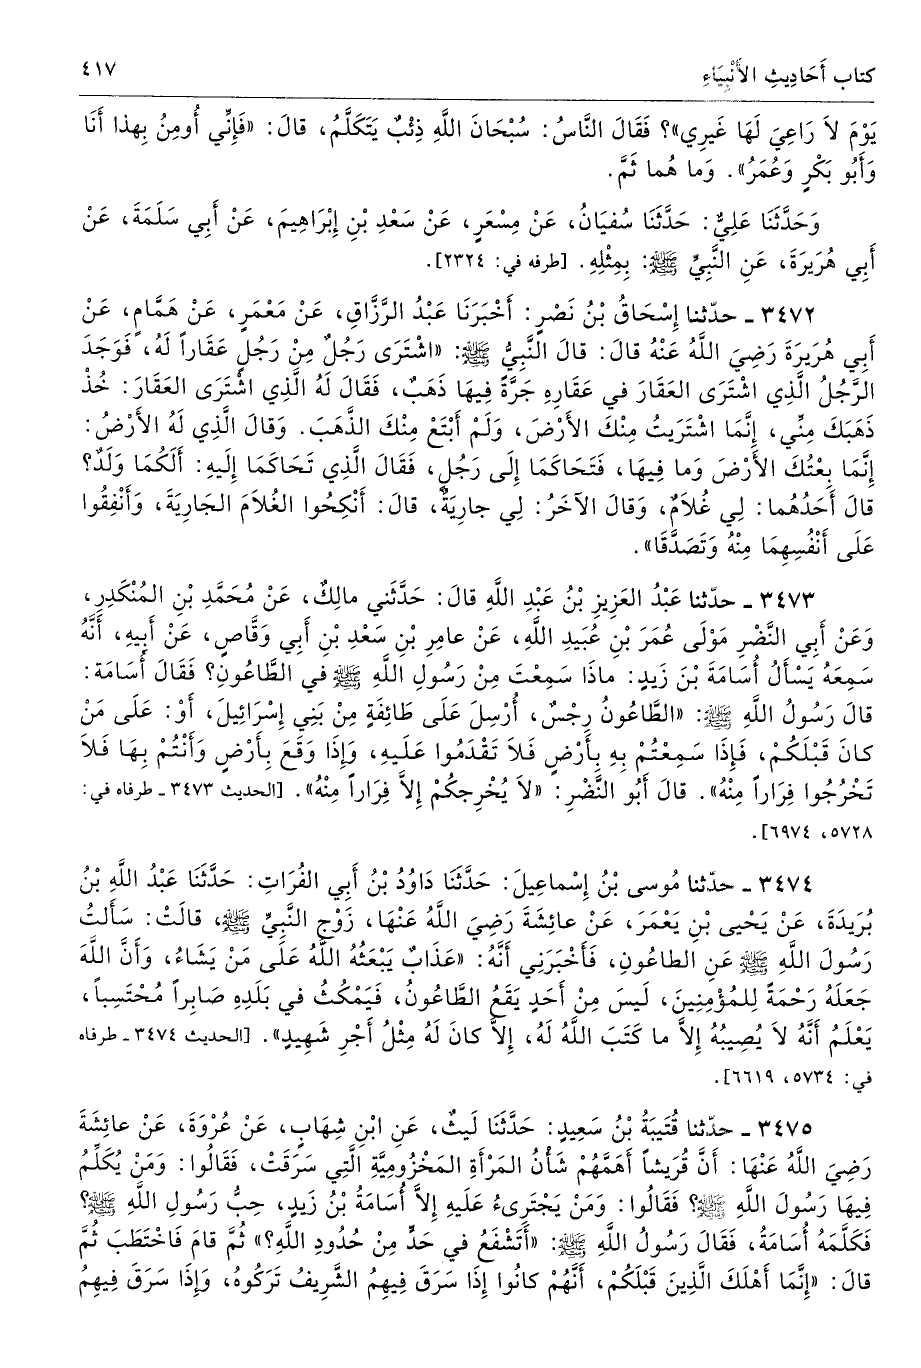 كتاب أَحَادِيثِ الأَنْبِيَاءِ ٤١٧
يَوْمَ لاَ رَاعِيَ لَهَا غَيرِي»؟ فَقَالَ النَّاسُ: سُبْحَانَ اللَّهِ ذِئْبٌ يَتَكَلَّمُ، قالَ: «فَإِنِّي أُومِنُ بِهذا أَنَا
وَأَبُو بَكْرٍ وَعُمَرُ». وَما هُما ثَمَّ.
وَحَدَّثَنَا عَلِيٌّ: حَدَّثَنَا سُفيَانُ، عَنْ مِسْعَرٍ، عَنْ سَعْدِ بْنِ إِبْرَاهِيمَ، عَنْ أَبِي سَلَمَةَ، عَنْ
أَبِي هُرَيرَةَ، عَنِ النَّبِيِّ ﷺ: بِمِثْلِهِ. [طرفه في: ٢٣٢٤].
٣٤٧٢ ـ حدّثنا إِسْحَاقُ بْنُ نَصْرٍ: أَخْبَرَنَا عَبْدُ الرَّزَّاقِ، عَنْ مَعْمَرٍ، عَنْ هَمَّامٍ، عَنْ
أَبِي هُرَيرَةَ رَضِيَ اللَّهُ عَنْهُ قالَ: قالَ النَّبِيُّ ﷺ: «اشْتَرَى رَجُلٌ مِنْ رَجُلٍ عَقَاراً لَهُ، فَوَجَدَ
الرَّجُلُ الَّذِي اشْتَرَى العَقَارَ في عَقَارِهِ جَرَّةً فِيهَا ذَهَبٌ، فَقَالَ لَهُ الَّذِي اشْتَرَى العَقَارَ: خُذْ
ذَهَبَكَ مِنِّي، إِنَّمَا اشْتَرَيتُ مِنْكَ الأَرْضَ، وَلَمْ أَبْتَعْ مِنْكَ الذَّهَبَ. وَقالَ الَّذِي لَهُ الأَرْضُ:
إِنَّمَا بِعْتُكَ الأَرْضَ وَما فِيهَا، فَتَحَاكَمَا إِلَى رَجُلٍ، فَقَالَ الَّذِي تَحَاكَمَا إِلَيهِ: أَلَكُمَا وَلَدٌ؟
قالَ أَحَدُهُما: لِي غُلاَمٌ، وَقالَ الآخَرُ: لِي جارِيَةٌ، قالَ: أَنْكِحُوا الغُلاَمَ الجَارِيَةَ، وَأَنْفِقُوا
عَلَى أَنْفُسِهِمَا مِنْهُ وَتَصَدَّقَا».
٣٤٧٣ ـ حدّثنا عَبْدُ العَزِيزِ بْنُ عَبْدِ اللَّهِ قالَ: حَدَّثَني مالِكٌ، عَنْ مُحَمَّدِ بْنِ المُنْكَدِرِ،
وَعَنْ أَبِي النَّضْرِ مَوْلَى عُمَرَ بْنِ عُبَيدِ اللَّهِ، عَنْ عامِرِ بْنِ سَعْدِ بْنِ أَبِي وَقَّاصٍ، عَنْ أَبِيهِ، أَنَّهُ
سَمِعَهُ يَسْأَلُ أُسَامَةَ بْنَ زَيدٍ: ماذَا سَمِعْتَ مِنْ رَسُولِ اللَّهِ ﷺ في الطَّاعُونِ؟ فَقَالَ أُسَامَةُ:
قالَ رَسُولُ اللَّهِ ﷺ: «الطَّاعُونُ رِجْسٌ، أُرْسِلَ عَلَى طَائِفَةٍ مِنْ بَنِي إِسْرَائِيلَ، أَوْ: عَلَى مَنْ
كانَ قَبْلَكُمْ، فَإِذَا سَمِعْتُمْ بِهِ بِأَرْضٍ فَلاَ تَقْدَمُوا عَلَيهِ، وَإِذَا وَقَعَ بِأَرْضٍ وَأَنْتُمْ بِهَا فَلاَ
تَخْرُجُوا فِرَاراً مِنْهُ». قالَ أَبُو النَّضْرِ: «لاَ يُخْرِجكُمْ إِلاَّ فِرَاراً مِنْهُ». [الحديث ٣٤٧٣ ـ طرفاه في:
٥٧٢٨، ٦٩٧٤].
٣٤٧٤ ـ حدّثنا مُوسى بْنُ إِسْماعِيلَ: حَدَّثَنَا دَاوُدُ بْنُ أَبِي الفُرَاتِ: حَدَّثَنَا عَبْدُ اللَّهِ بْنُ
بُرَيدَةَ، عَنْ يَحْيى بْنِ يَعْمَرَ، عَنْ عائِشَةَ رَضِيَ اللَّهُ عَنْهَا، زَوْجِ النَّبِيِّ ﷺ، قالَتْ: سَأَلتُ
رَسُولَ اللَّهِ ﷺ عَنِ الطاعُونِ، فَأَخْبَرَنِي أَنَّهُ: «عَذَابٌ يَبْعَثُهُ اللَّهُ عَلَى مَنْ يَشَاءُ، وَأَنَّ اللَّهَ
جَعَلَهُ رَحْمَةً لِلمُؤْمِنِينَ، لَيسَ مِنْ أَحَدٍ يَقَعُ الطَّاعُونُ، فَيَمْكُثُ في بَلَدِهِ صَابِراً مُحْتَسِباً،
يَعْلَمُ أَنَّهُ لاَ يُصِيبُهُ إِلاَّ ما كَتَبَ اللَّهُ لَهُ، إِلاَّ كانَ لَهُ مِثْلُ أَجْرِ شَهِيدٍ». [الحديث ٣٤٧٤ ـ طرفاه
في: ٥٧٣٤، ٦٦١٩].
٣٤٧٥ ـ حدّثنا قُتَيبَةُ بْنُ سَعِيدٍ: حَدَّثَنَا لَيثٌ، عَنِ ابْنِ شِهَابٍ، عَنْ عُرْوَةَ، عَنْ عائِشَةَ
رَضِيَ اللَّهُ عَنْهَا: أَنَّ قُرَيشاً أَهَمَّهُمْ شَأْنُ المَرْأَةِ المَخْزُومِيَّةِ الَّتِي سَرَقَتْ، فَقَالُوا: وَمَنْ يُكَلِّمُ
فِيهَا رَسُولَ اللَّهِ ﷺ؟ فَقَالُوا: وَمَنْ يَجْتَرِىءُ عَلَيهِ إِلاَّ أُسَامَةُ بْنُ زَيدٍ، حِبُّ رَسُولِ اللَّهِ ﷺ؟
فَكَلَّمَهُ أُسَامَةُ، فَقَالَ رَسُولُ اللَّهِ ﷺ: «أَتَشْفَعُ في حَدٍّ مِنْ حُدُودِ اللَّهِ؟» ثُمَّ قامَ فَاخْتَطَبَ ثُمَّ
قالَ: «إِنَّمَا أَهْلَكَ الَّذِينَ قَبْلَكُمْ، أَنَّهُمْ كانُوا إِذَا سَرَقَ فِيهِمُ الشَّرِيفُ تَرَكُوهُ، وَإِذَا سَرَقَ فِيهِمُ